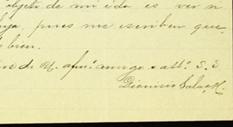 objeto de mi ida es ver a
hija, pues me escriben que
bien.
de V. afmo. amigo e atto. S. S.
Dionisio